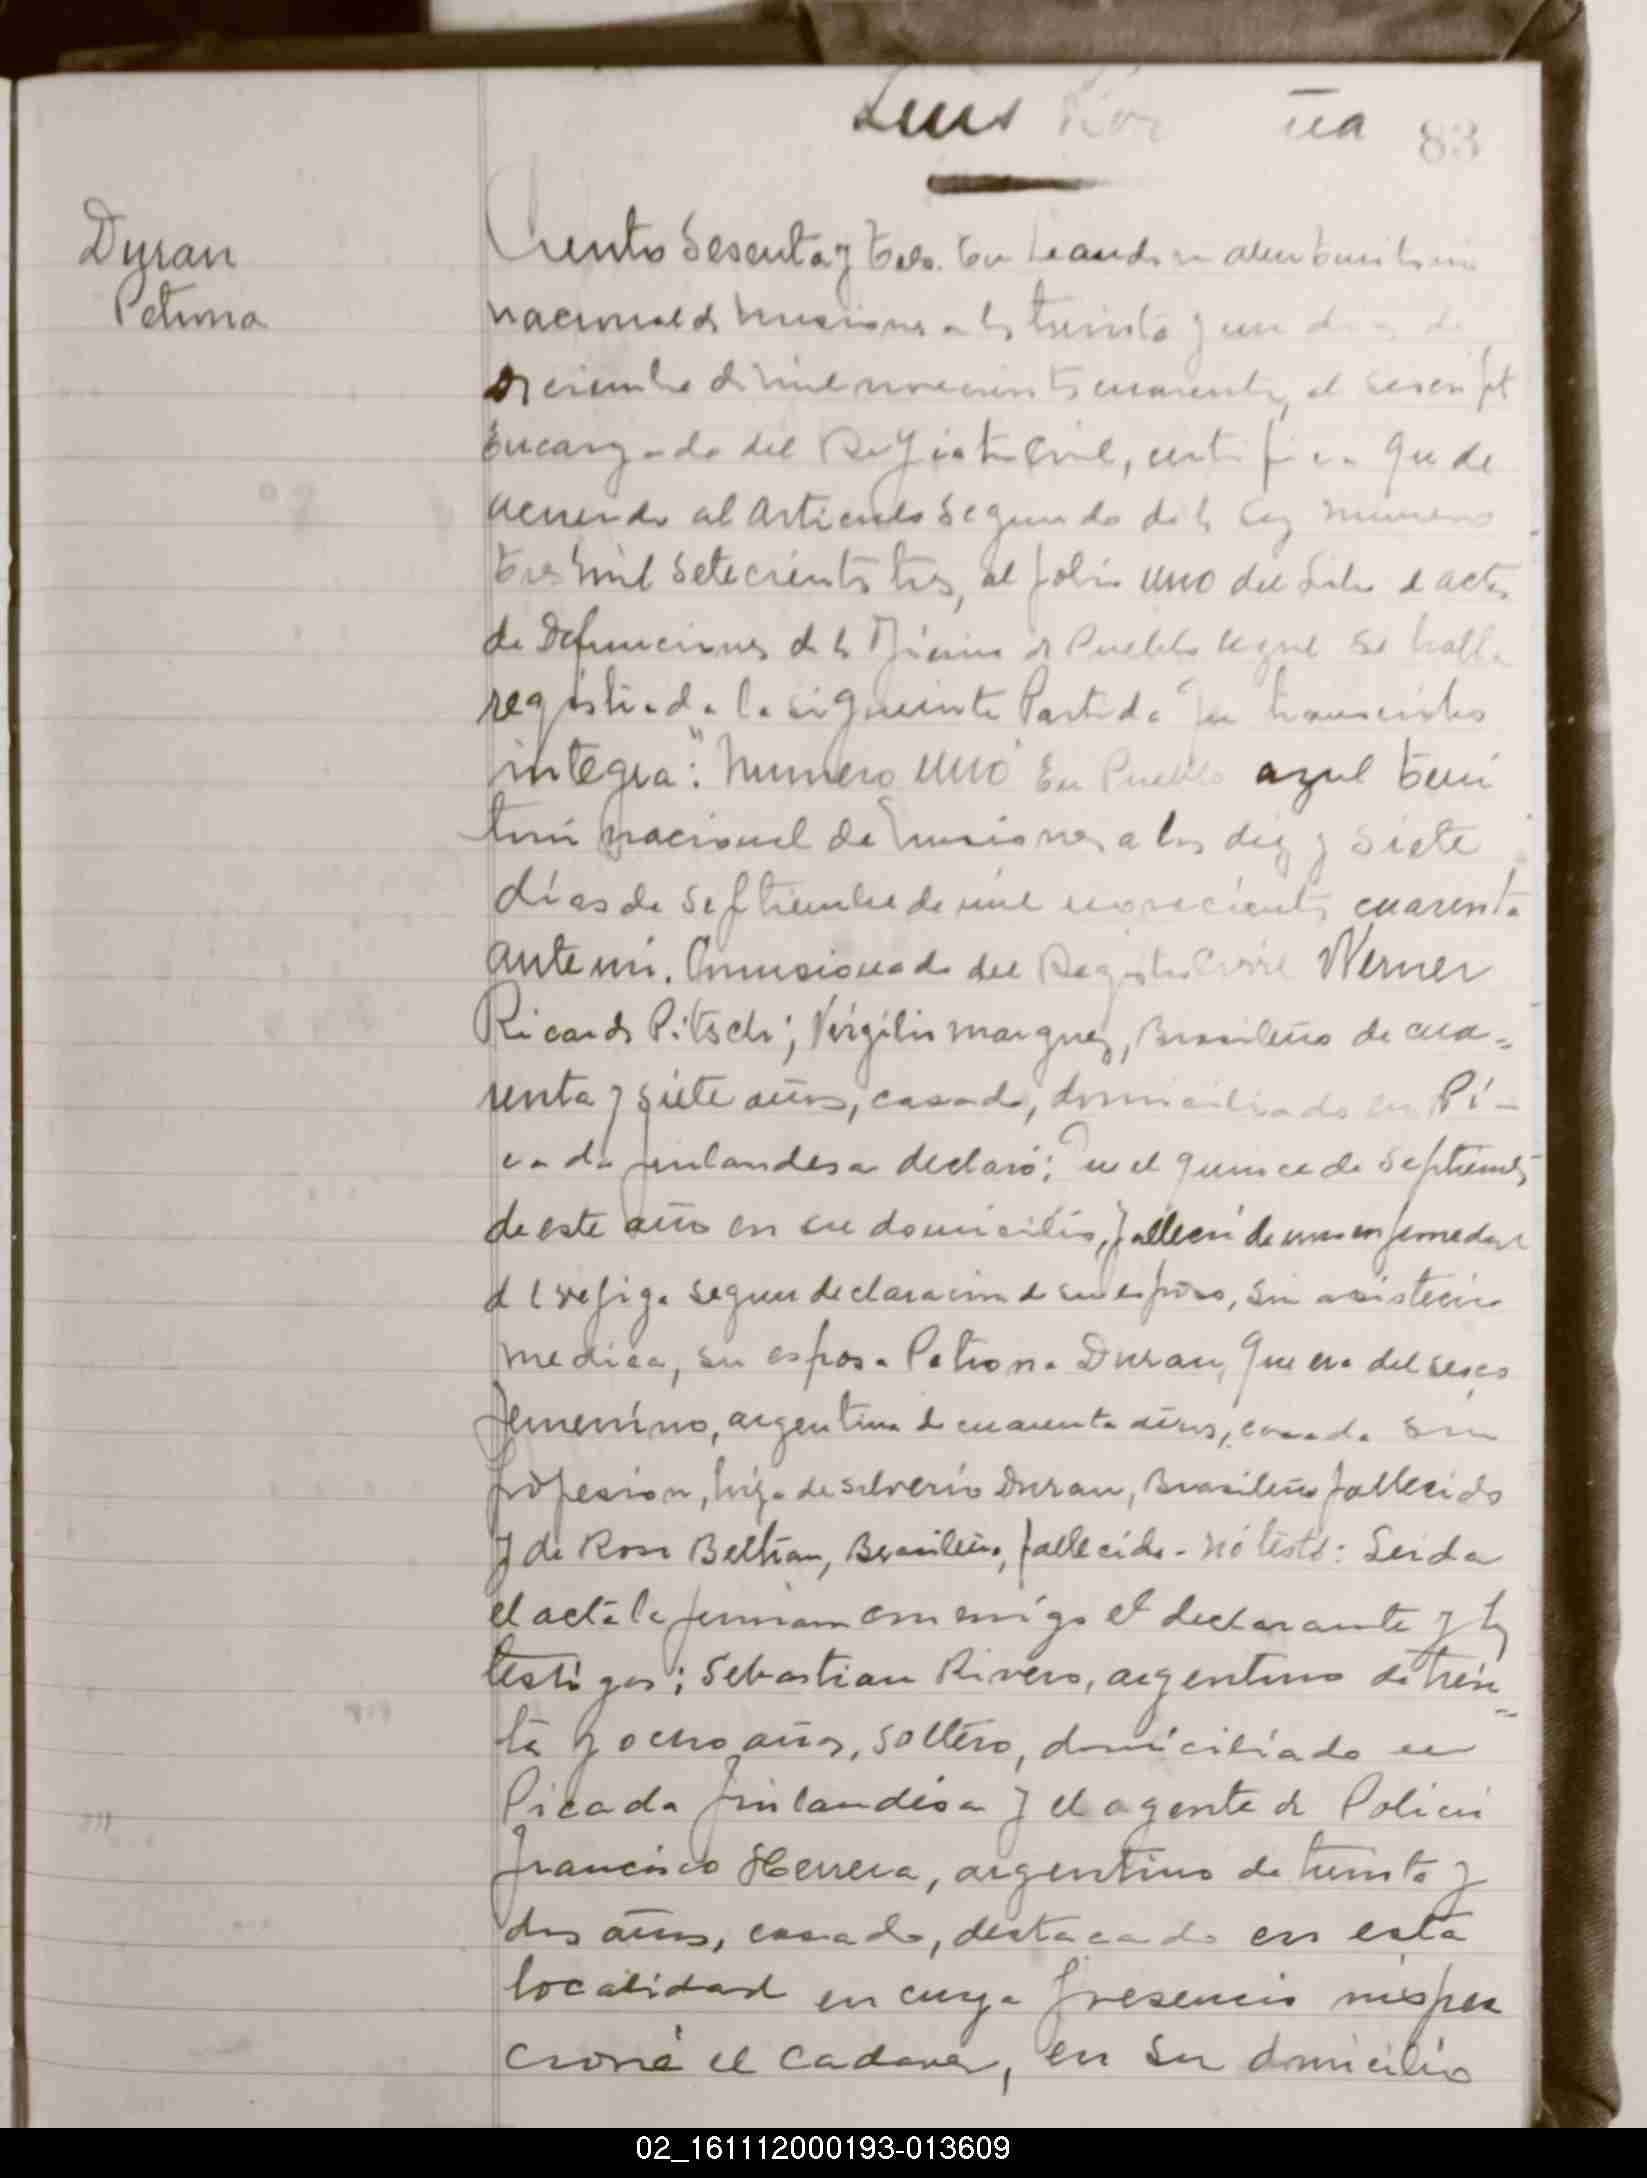 Luis
83
Duran
Petrona
Ciento Sesenta y tres. En Leandro N Alem territorio
nacional de Misiones a los treinta y un dias de
Diciembre de mil novecientos cuarenta, el suscripto
Encargado del Registro Civil, certifica que de
acuerdo al Articulo Segundo de la Ley numero
tres mil setecientos tres, al folio uno del Libro de actas
de Defunciones de la Oficina de Pueblo azul se halla
registrada la siguiente Partida que transcribo
integra: "Numero uno En Pueblo azul terri
torio nacional de Misiones a los diez y siete
días de Septiembre de mil novecientos cuarenta
ante mi. Comisionado del Registro Civil Werner
Ricardo Pitsch; Virgilio Marquez, Brasileño de cua=
renta y siete años, casado, domiciliado en Pi-
cada finlandesa declaró: Que el quince de Septiembre
de este año en su domicilio, falleció de una enfermedad
de vejiga segun declaracion de su esposo, sin asistecia
medica, su esposa Petrona Duran, que era del sexo
femenino, argentina de cuarenta años, casada sin
profesion, hija de Silverio Duran, Brasileño fallecido
y de Rosa Beltran, Brasileña, fallecida - nó testó: Leida
el acta la firman conmigo el declarante y los
testigos; Sebastian Rivero, argentino de trein=
ta y ocho años, soltero, domiciliado en
Picada finlandesa y el agente de Policia
Francisco Herrera, argentino de treinta y
dos años, casado, destacado en esta
localidad en cuya presencia inspec
cioné el cadaver, en su domicilio
02_161112000193-013609